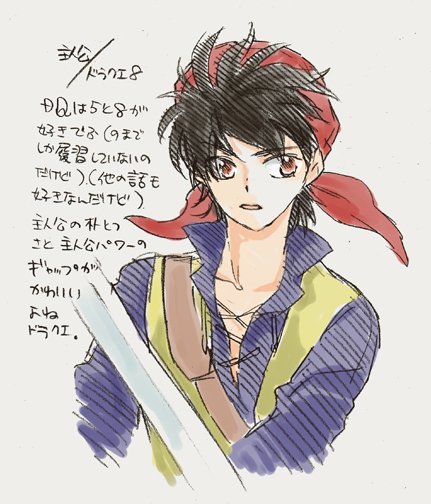 主人公/ドラクエ8
DQは5と8が
好きです(のまで
しか履習していないの
だけど)、(他の話も
好きなんだけど)
主人公の朴とつ
さと主人公パワーの
ギャップが
かわいい
よね
ドラクエ。